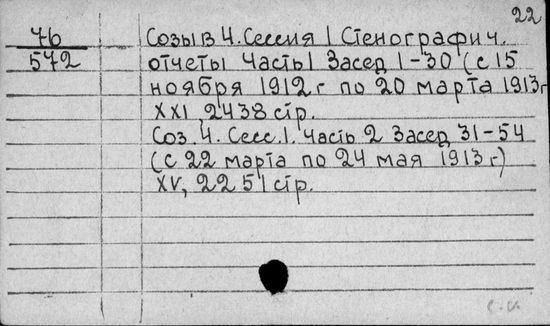 22
76
572
Созыв 4. Сессия 1 Стенографич.
отчеты Часть 1 Засед 1-30 (с 15
ноября 1912 г по 20 марта 1913 г
XXI, 2438 стр.
Соз. 4. Сесс. 1. Часть 2 Засед 31-54
(с 22 марта по 24 мая 1913 г)
XV, 2251 стр.